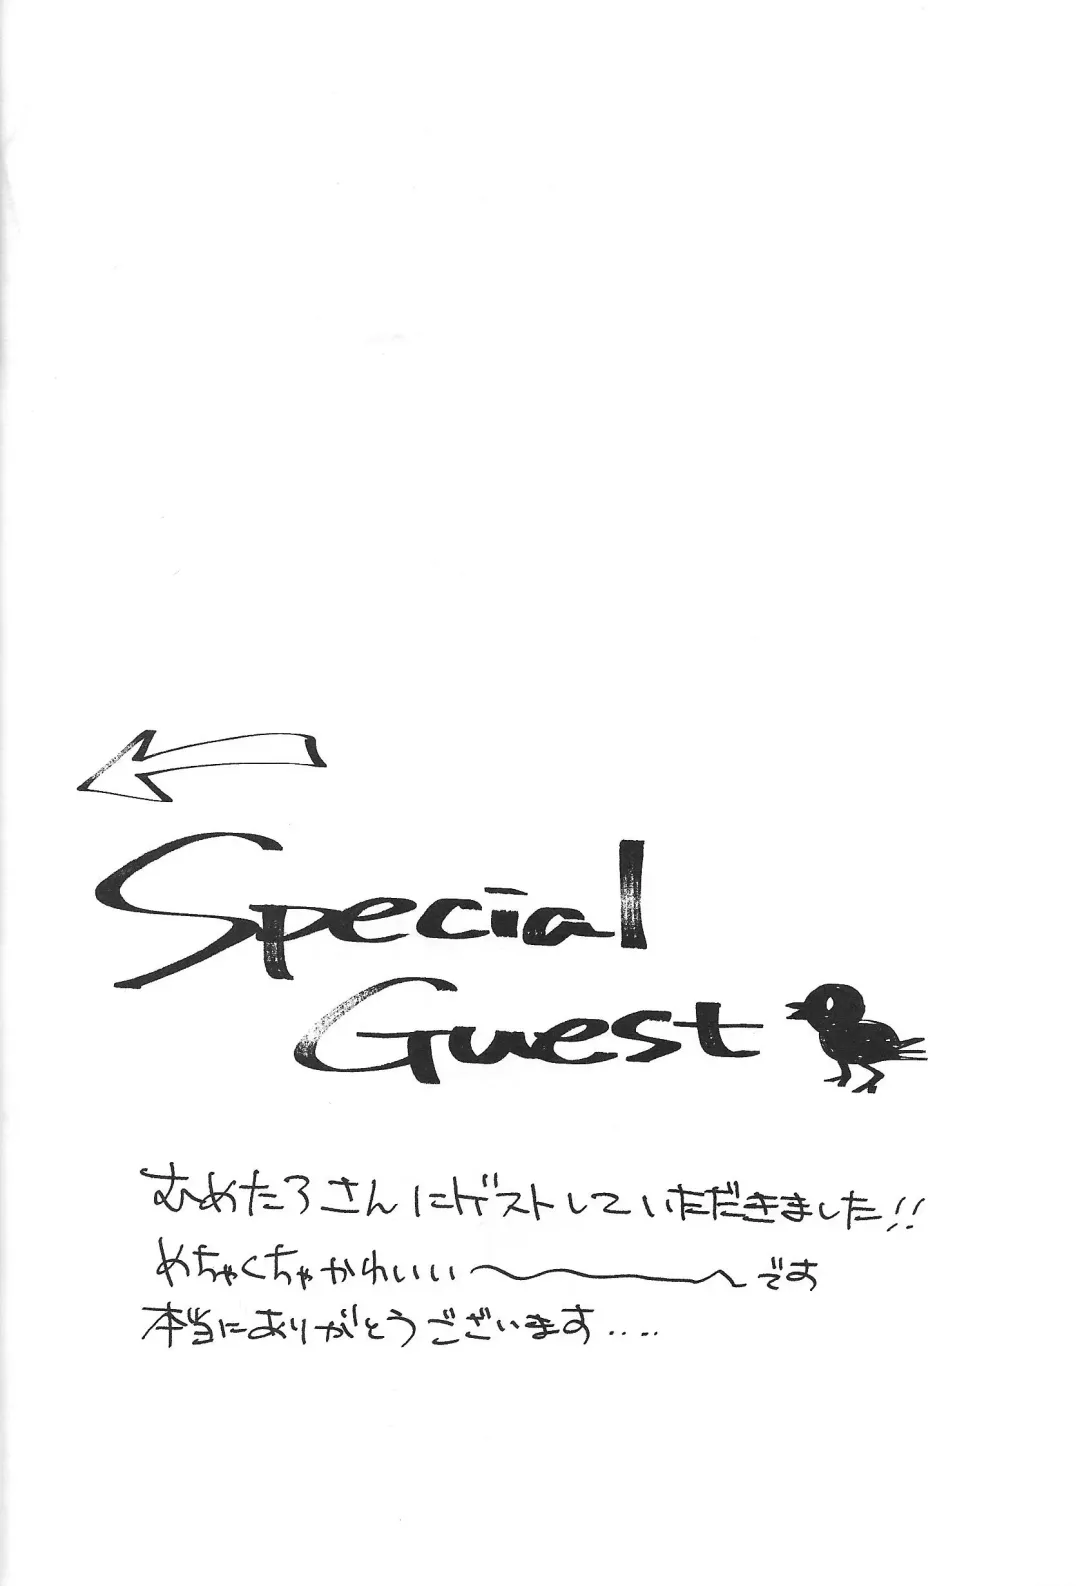 Special
Guest
むめたろさんにゲストしていただきました!!
めちゃくちゃかわいい〜〜です
本当にありがとうございます‥‥